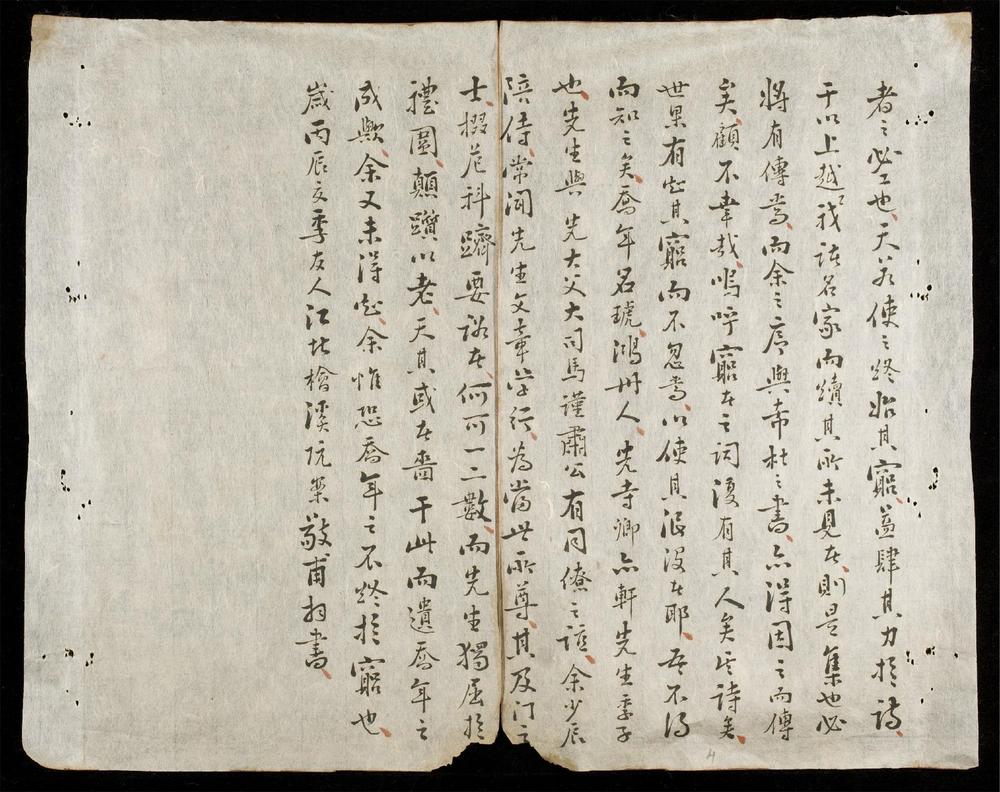 者之必工也天若使之終始其窮益肆其力於詩
于以上越我諸名家而續其所未見者則是集也必
將有傳焉而余之序與希杜之書亦得因之而傳
矣顧不幸哉嗚呼窮者之詞復有其人矣其詩矣
世果有知其窮而不忍焉以使其沒者耶吾不得
而知之矣喬年名琥鴻州人先寺卿亦軒先生季子
也先生與先大父大司馬謹肅公有同僚之誼余少辰
陪侍常聞先生文章學行為當世所尊其及门之
士掇花科躋要路者何可一二數而先生獨屈於
禮圍顛躓以老天其或者嗇于此而遺喬年之
成歟余又未得知余惟恐喬年之不終於窮也
歲丙辰夏季友人江北檜溪阮敬甫拜書